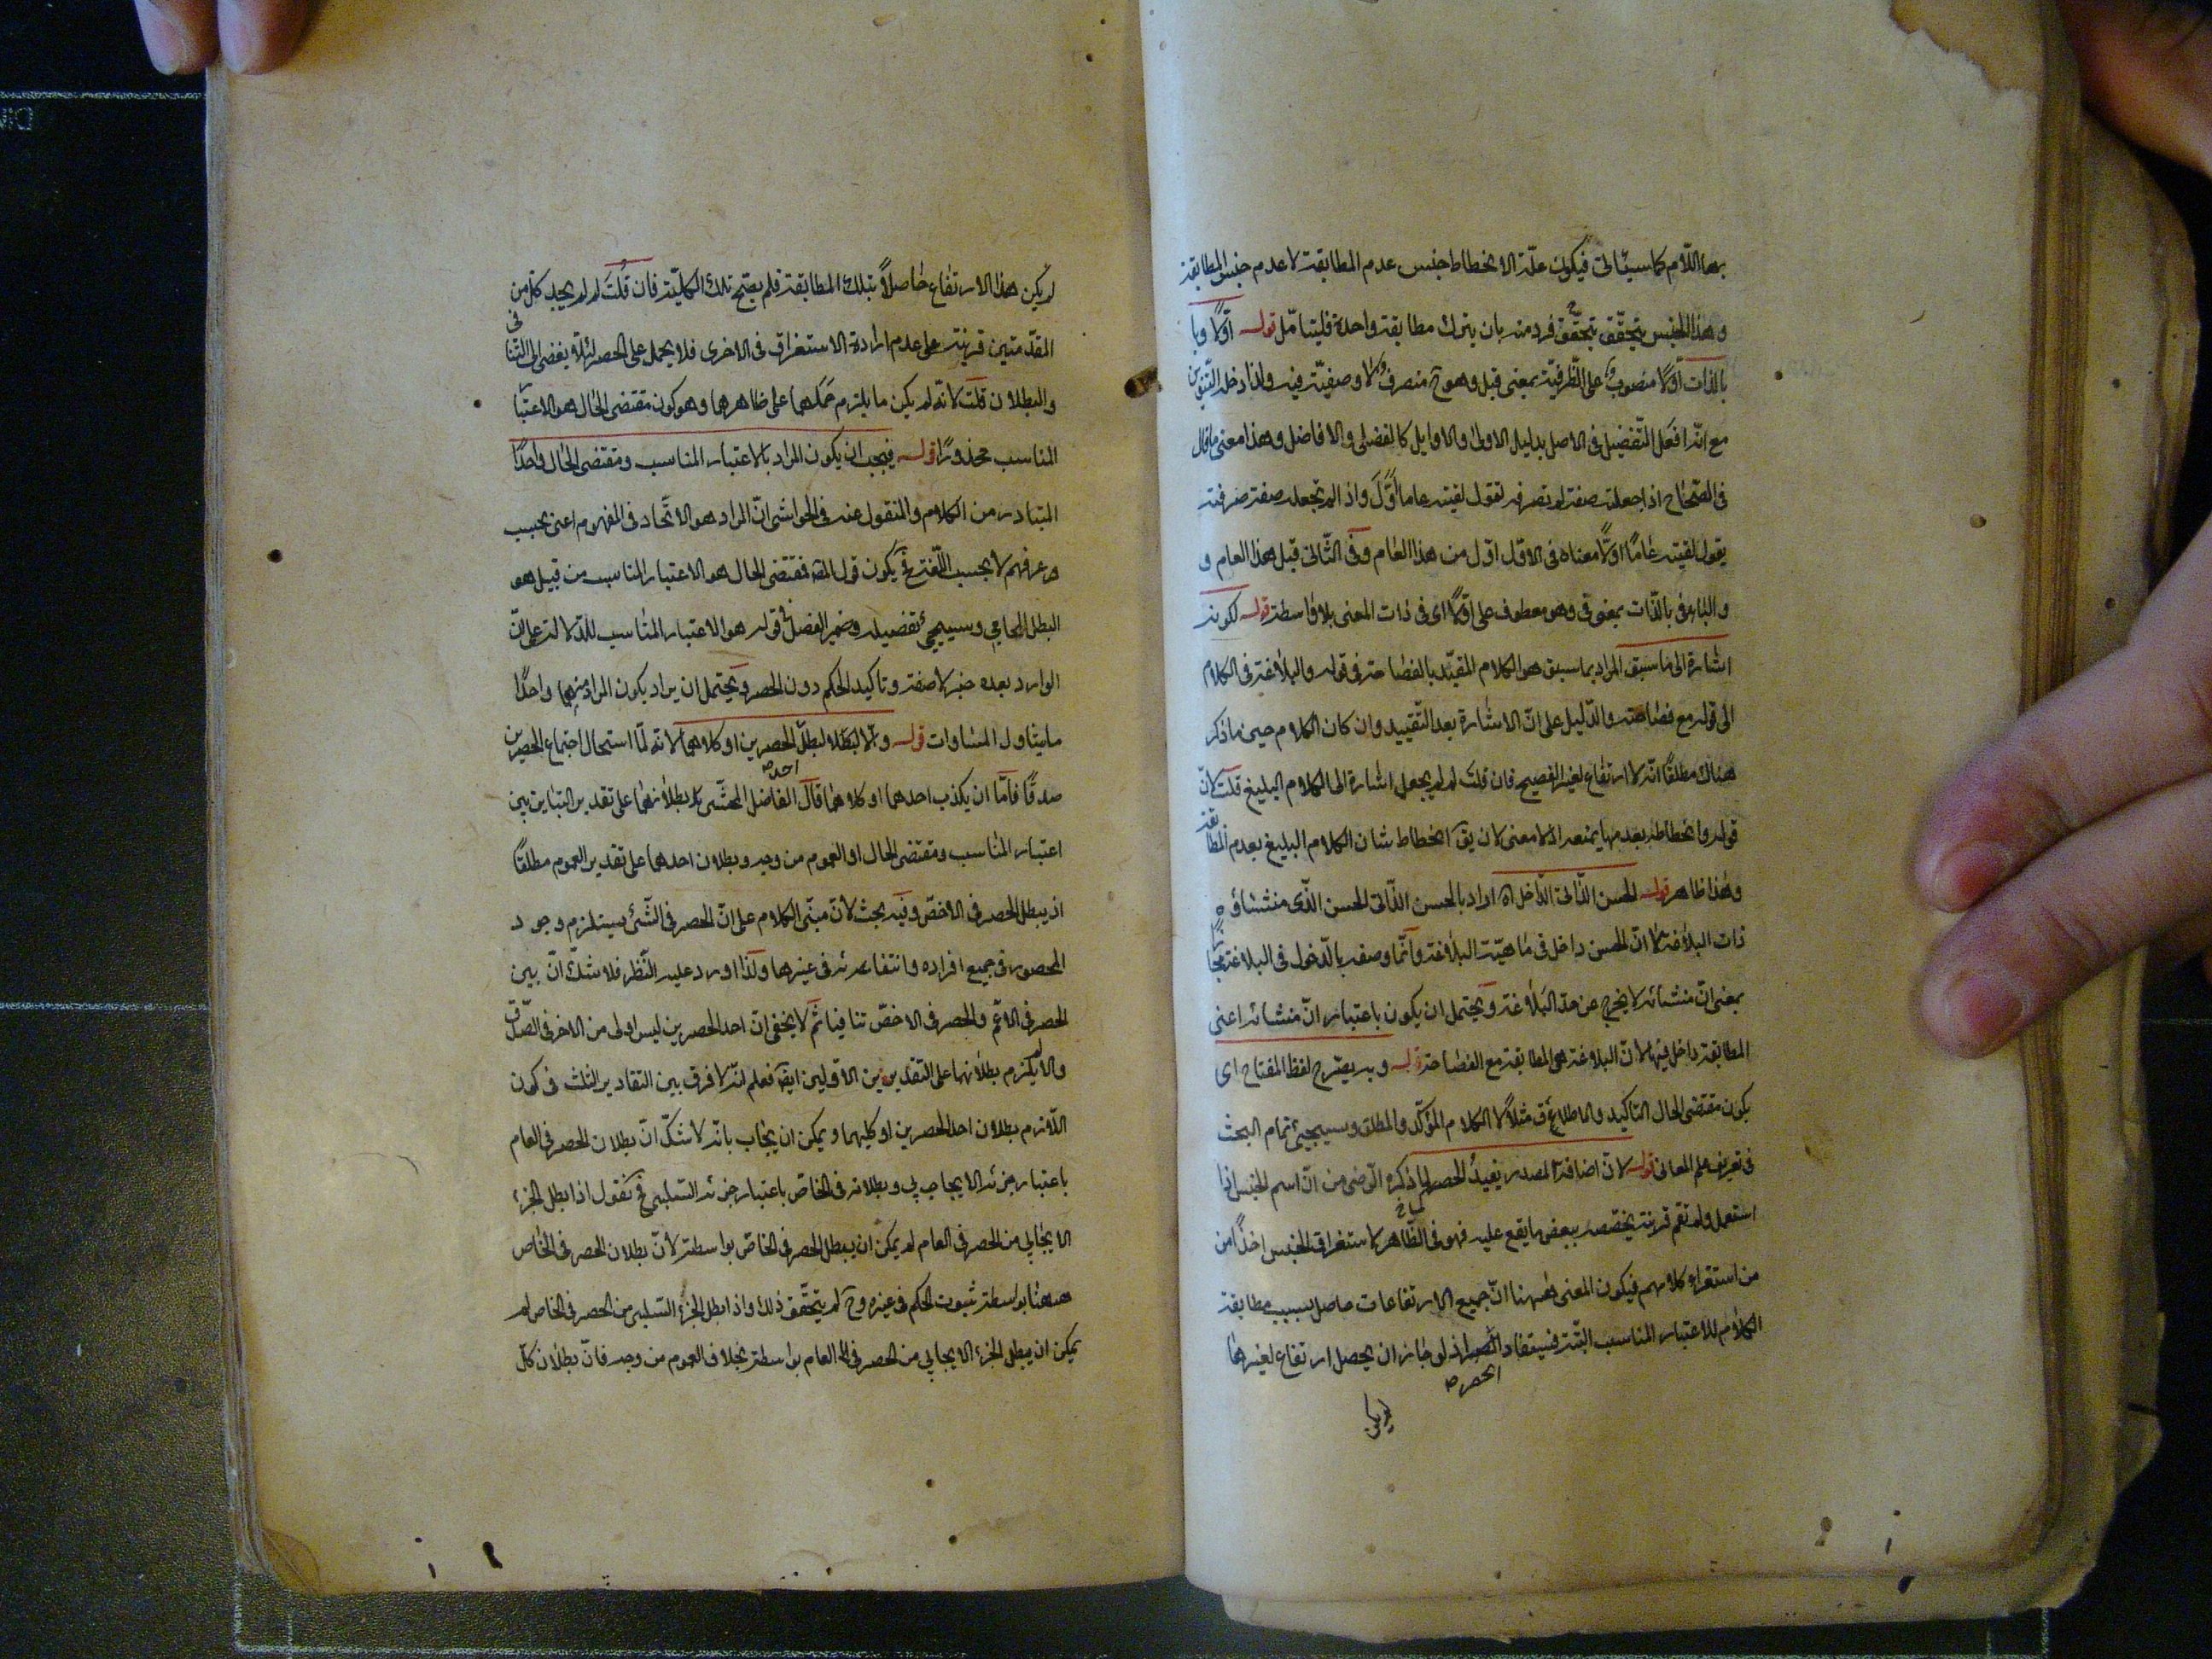 بهما اللّام كما سيأتى فيكون علّة الانحطاط جنس عدم المطابقة لا عدم جنس المطابقة
وهذا الجنس يتحقّق بتحقّق فرد منه بان يترك مطابقة واحدة فليتامّل قوله اوّلًا وبا
بالذات اوّلًا منصوب على الظّرفيّة بمعنى قبل وهو ح منصرف ولا وصفيّة فيه ولذا دخل التنوين
مع انّه افعل التّفضيل فى الاصل بدليل الاولى والاوايل كالفضلى والافاضل وهذا معنى ما قال
فى الصّحاح اذا جعلته صفة لم تصرفه تقول لقيته عاما اوّلَ واذا لم تجعله صفة صرفته
يقول لقيته عامًا اوّلًا معناه فى الاوّل اوّل من هذا العام وفى الثّانى قبل هذا العام و
والباء فى بالذّات بمعنى فى وهو معطوف على اوّلًا اى فى ذات المعنى بلا واسطة قوله لكونه
اشارة الى ما سبق المراد بما سبق هو الكلام المقيّد بالفصاحة فى قوله والبلاغة فى الكلام
الى قوله مع فصاحته والدّليل على انّ الاشارة بعد التّقييد وان كان الكلام حين ما ذكر
هناك مطلقًا انّه لا ارتفاع لغير الفصيح فان قلت لم لم يجعل اشارة الى الكلام البليغ قلت لانّ
قوله وانحطاطه بعدمها يمنعه اذ لا معنى لان يق انحطاط شان الكلام البليغ بعدم المطابقة
وهذا ظاهر قوله الحسن الذّاتى الدّاخل اه اراد بالحسن الذّاتى الحسن الّذى منشئاؤه
ذات البلاغة لا انّ الحسن داخل فى ماهيّة البلاغة وانّما وصف بالدّخول فى البلاغة مجازًا
بمعنى انّ منشائه لا يخرج عن حدّ البلاغة ويحتمل ان يكون باعتبار انّ منشائه اعنى
المطابقة داخل فيها لانّ البلاغة هى المطابقة مع الفصاحة قوله وبه يصّرح لفظ المفتاح اى
يكون مقتضى الحال التاكيد والاطلاق مثلًا لا الكلام المؤكّد والمطلق وسيجيئ تمام البحث
فى تعريف علم المعانى قوله لانّ اضافة المصدر يفيد الحصر لما ذكره الرّضى من انّ اسم الجنس اذا
استعمل ولم تقم قرينة يخصّصه ببعض ما يقع عليه فهو فى الظّاهر لاستغراق الجنس اخذًا من
من استقراء كلامهم فيكون المعنى ههنا انّ جميع الارتفاعات حاصل بسبب مطابقة
الكلام للاعتبار المناسب البتّة فيستفاد الحصر اذ لو جاز ان يحصل ارتفاع لغيرها
الحصر صح
لم يكن
لم يكن هذا الارتفاع حاصلًا بتلك المطابقة فلم يصحّ تلك الكليّة فان قُلتَ لم لم يجد كل من
المقدّمتين قرينة على عدم ارادة الاستغراق فى الاخرى فلا يحمل على الحصر لئلّا يفضى الى التّنافى
والبطلان قلت لانّه لم يكن ما يلزم حملهما على ظاهرهما وهو كون مقتضى الحال هو الاعتبار
المناسب محذورًا قوله فيجب ان يكون المراد بالاعتبار المناسب ومقتضى الحال واحدًا
المتبادر من الكلام والمنقول عنه فى الحواشى انّ المراد هو الاتّحاد فى المفهوم اعنى بحسب
عرفهم لا بحسب اللّغة فح يكون قول المصّ فمقتضى الحال هو الاعتبار المناسب من قبيل هو
البطل المحامى وسيجيئ تفضيله وضمير الفصل فى قوله هو الاعتبار المناسب للدّلالة على انّ
الوارد بعده خبر لا صفة وتاكيد الحكم دون الحصر ويحتمل ان يراد يكون المراد منهما واحدًا
ما يتناول المساوات قوله والّا لبطل الحصرين او كلاهما لانّه لمّا استحال اجتماع الحصرين
احد صح
صدقًا فامّا ان يكذب احدهما او كلاهما قال الفاضل المحشّى لا بطلانهما على تقدير التباين بين
اعتبار المناسب ومقتضى الحال او العموم من وجه وبطلان احدهما على تقدير العموم مطلقًا
اذ يبطل الحصر فى الاخصّ وفيه بحث لانّ مبنى الكلام على انّ الحصر فى الشّئ يستلزم وجود
المحصور فى جميع افراده وانتفاءه فى غيرها ولذا اورد عليه النّظر فلا شكّ انّ بين
الحصر فى الاعمّ والحصر فى الاخصّ تنافيا ثم لا يخفى انّ احد الحصرين ليس اولى من الاخر فى الصّدق
والّا لم يلزم بطلانهما على التقديرين الاوّلين ايضا فعلم انّه لا فرق بين التقادير الثلث فى كون
اللّازم بطلان احد الحصرين او كليهما ويمكن ان يجاب بانّه لا شكّ انّ بطلان الحصر فى العام
باعتبار جزئه الايجابى وبطلانه فى الخاصّ باعتبار جزئه السّلبى فح نقول اذا بطل الجزء
الايجابى من الحصر فى العام لم يمكن ان يبطل الحصر فى الخاصّ بواسطته لانّ بطلان الحصر فى الخاص
ههنا بواسطة ثبوت الحكم فى غيره وح لم يتحقّق ذلك واذا بطل الجزء السّلبى من الحصر فى الخاص لم
يمكن ان يبطل الجزء الايجابى من الحصر فى العام بواسطته بخلاف العموم من وجه فانّ بطلان كلّ